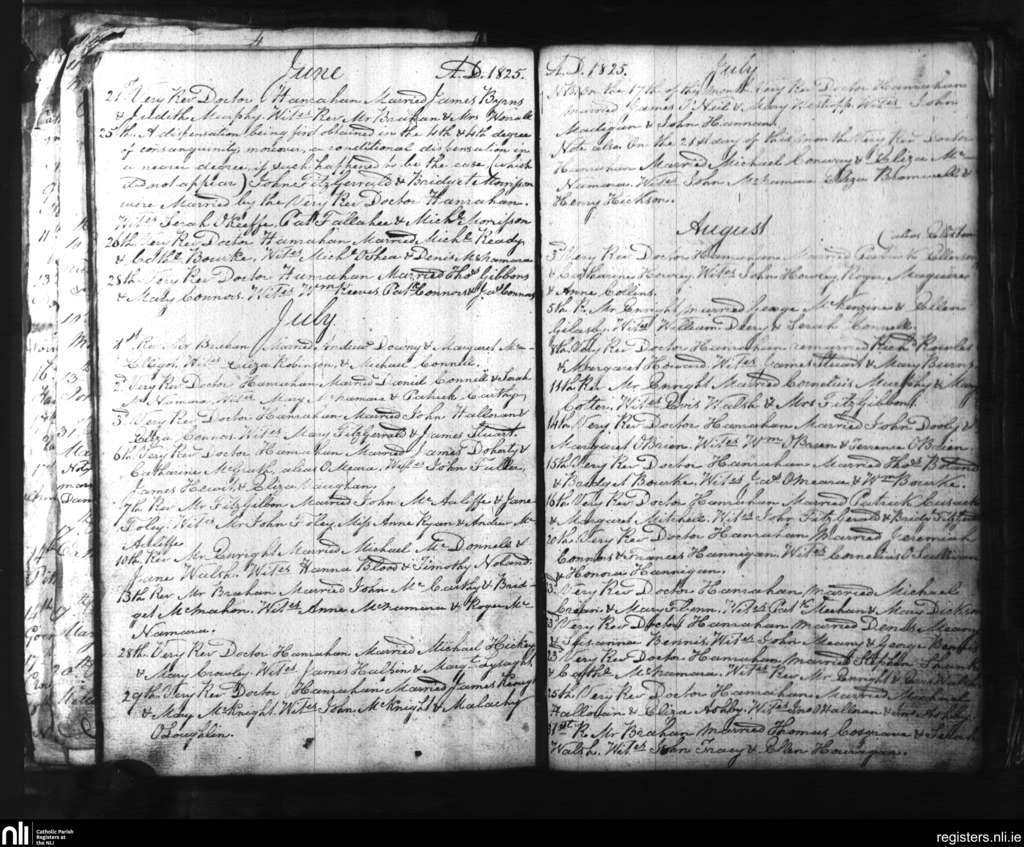 4
June A.D. 1825.
21st Very Rev Doctor Hanrahan Married James Byrns
& Judith Murphy Wits Rev Mr Brahan & Mrs
25th A dispensation being first obtained in the 4th & 4th degree
of consanguinity, moreover, a conditional dispensation in
a nearer degree, if such happened to be the case (which
did not appear) John Fitzgerrald & Bridget Morrison
were Married by the Very Rev Doctor Hanrahan.
Wits Serah O'Keeffe, Patk Fallahee & Michl Morrison
26th Very Rev Doctor Hanrahan Married Michl Ready
& Cathe Bourke, Wits Michl O'Shea & Denis McNamara
28th Very Rev Doctor Hanrahan Married Thos Gibbons
& Mary Connors. Wits Wm Reeves Patk Connors & Jas Connors
July
1st Rev Mr Brahan Married Andrew Downy & Margaret Mc
Elligoh Wits Eliza Robinson, & Michael Connell.
Very Rev Doctor Hanrahan Married Daniel Connell & Sarah
McNamara Wits Mary McNamara & Patrick Carthy
3d Very Rev Doctor Hanrahan Married John Halloran &
Eliza Connors Wits Mary Fitzgerrald & James Stuart.
6th Very Rev Doctor Hanrahan Married James Doherty &
Catharine McGrath, alias O'Meara, Witss John Fuller,
James Hewit, & Eliza Vaughan.
7th Rev Mr FitzGibbon Married John Mc Auliffe & Jane
Foley. Wits Mr John Foley Miss Anne Ryan & Andrew Mc
Auliffe
10th Rev Mr Enright Married Michael McDonnell &
Jane Walsh. Wits Hanna Blood & Timothy Noland.
13th Rev Mr Brahan Married John McCarthy & Brid-
get McMahon. Witss Anne McNamara & Roger Mc
Namara.
28th Very Rev Doctor Hanrahan Married Michael Hickey
& Mary Crowley Wits James Halpin & Mary Geysaght
29th Very Rev Doctor Hanrahan Married James
& Mary McKnight Wits John McKnight & Malachy
O'Loughlin.
A.D. 1825. July
NB On the 17th of this month Very Rev Doctor Hanrahan
married James O'Neil & Mary Westropp Wits John
Madigan & John Hannan.
Note also On the 21st day of this month Very Rev Doctor
Hanrahan Married Michael Conway & Eliza Mc
Namara. Wits John McNamara Eliza Blumwell &
Henry Hickson.
August
3d Very Rev Doctor Hanrahan Married
& Catharine Hourey Wits John Hourey Roger
& Anne Collins.
5th Rev Mr Enright married George McKenzie & Ellen
Wits William Deery & Serah Connell.
8th Very Rev Doctor Hanrahan remarried Richd Rowles
& Margaret Howard Wits James Stuart & Mary Burns
11th Rev Mr Enright Married Cornelius Murphy & Mary
Cotter. Wits Walsh & Mrs FitzGibbon.
14th Very Rev Doctor Hanrahan Married John Dooly &
Margaret O'Brien Wits Wm O'Brien & Terrence O'Brien
15th Very Rev Doctor Hanrahan Married Thos
& Bridget Bourke. Wits Cat O'Meara & Wm Bourke.
16th Very Rev Doctor Hanrahan Married Patrick Cusack
& Margaret Mitchell. Wits John FitzGerald & Bridgt
20th Very Rev Doctor Hanrahan Married Jeremiah
Connors & Frances Hannigan. Wits Cornelius O'Sullivan
& Honora Hannigan.
Very Rev Doctor Hanrahan Married Michael
& Mary Flynn. Wits Patk Meehan & Mary
Very Rev Doctor Hanrahan Married Denis Meany
& Susanna Bennis Wits John Meany & George
Very Rev Doctor Hanrahan Married Stephen
& Cathe McNamara. Wits Rev Mr Enright &
25th Very Rev Doctor Hanrahan Married Michael
Halloran & Eliza Ashby. Wits Jno O'Halloran & Ashby.
31st Rev Mr Brahan Married Thomas Cosgrave &
Walsh. Wits John Tracy & Ellen Hourigan.
nli Catholic Parish
Registers at
the NLI
registers.nli.ie